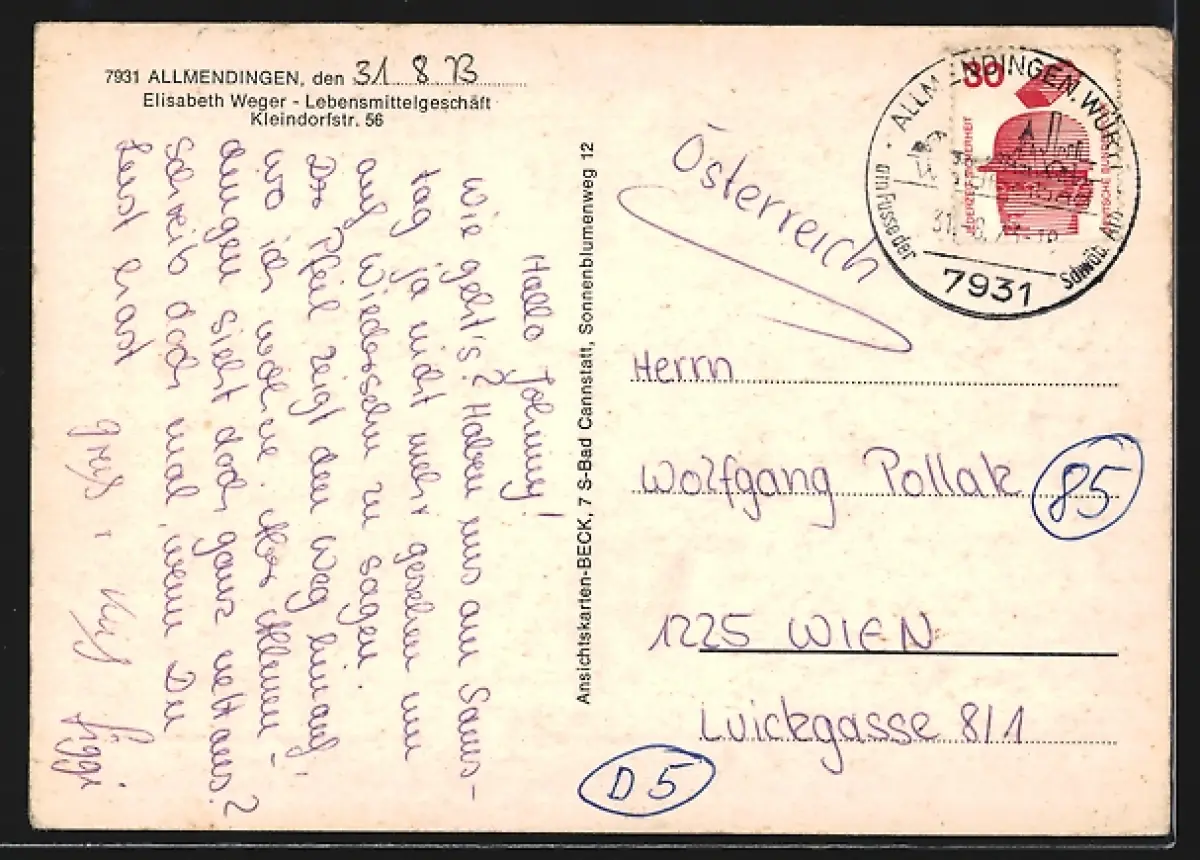 7931 ALLMENDINGEN, den 31. 8. 73
Elisabeth Weger - Lebensmittelgeschäft
Kleindorfstr. 56
Hallo Johnny!
Wie geht's? Haben uns am Sams-
tag ja nicht mehr gesehen um
auf Wiedersehn zu sagen.
Der Pfeil zeigt den Weg hinauf,
wo ich wohne. Aber Allmen-
dingen sieht doch ganz nett aus?
Schreib doch mal, wenn Du
Lust hast
Gruß + Kuß
Siggi
Ansichtskarten-BECK, 7 S-Bad Cannstatt, Sonnenblumenweg 12
30
JEDERZEIT SICHERHEIT
DEUTSCHE BUNDESPOST
ALLMENDINGEN, WÜRTT
am Fusse der Schwäb. Alb
7931
Österreich
Herrn
Wolfgang Pollak
85
1225 WIEN
Luickgasse 8/1
D 5